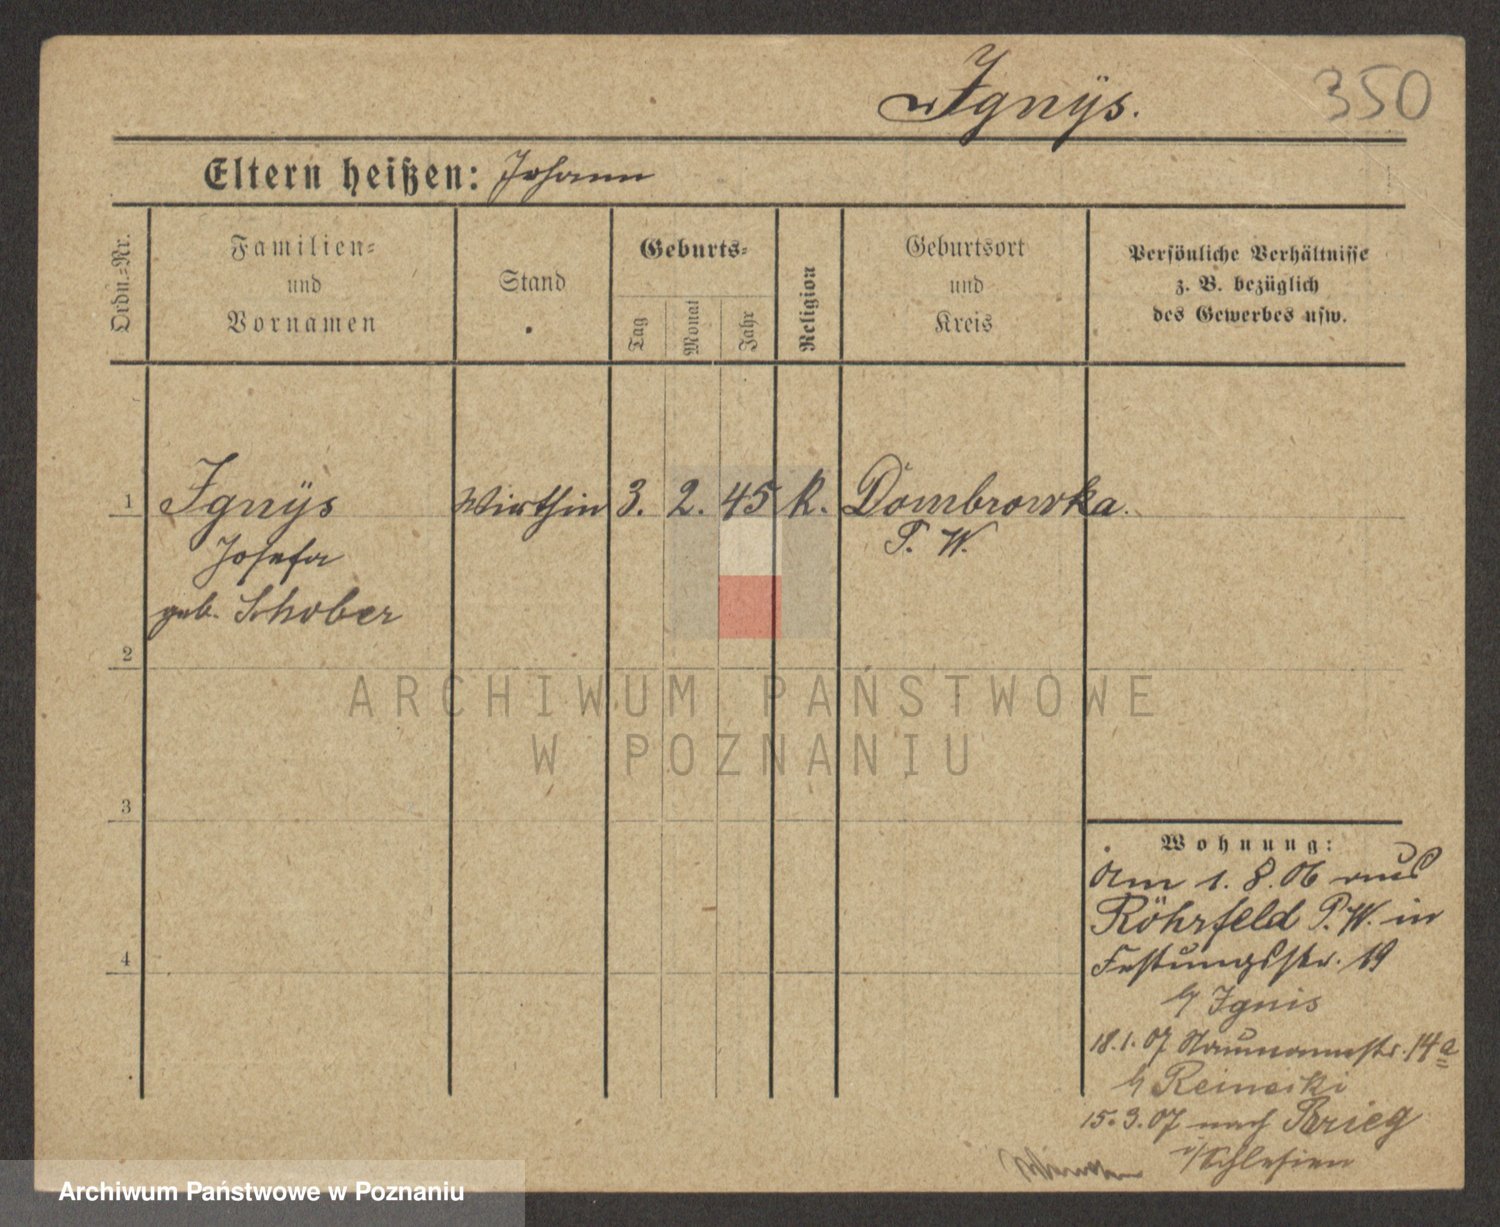 Ignÿs.
350
Eltern heißen: Johann
Ordn.-Nr.
Familien-
und
Vornamen
Stand
Geburts-
Tag
Monat
Jahr
Religion
Geburtsort
und
Kreis
Persönliche Verhältnisse
z. B. bezüglich
des Gewerbes usw.
1 Ignÿs Wirthin 3. 2. 45 k. Dombrowka.
Josefa P. W.
geb. Schober
2
ARCHIWUM PAŃSTWOWE
W POZNANIU
3
Wohnung:
Am 1. 8. 06 aus
Röhrfeld P. W. in
Festungsstr. 19
b/ Ignis
18.1.07 Naumannstr. 14a
b/ Reinecki
15.3.07 nach Brieg
i/Schlesien
4
Archiwum Państwowe w Poznaniu